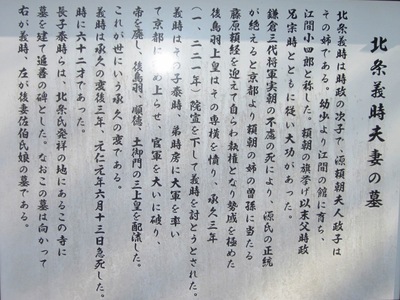 北条義時夫妻の墓
北条義時は時政の次子で、源頼朝夫人政子は
その姉である。幼少より江間の館に育ち、
江間小四郎と称した。頼朝の旗挙げ以来父時政
兄宗時とともに従い大功があった。
鎌倉三代将軍実朝の不慮の死により、源氏の正統
が絶えると京都より頼朝の姉の曽孫に当たる
藤原頼経を迎えて自らわ執権となり勢威を極めた
後鳥羽上皇はその専横を憤り、承久三年
(一、二二一年)院宣を下して義時を討とうとされた。
義時はその子泰時、弟時房に大軍を率い
て京都に攻め上らせ、官軍を大いに破り、
帝を廃し、後鳥羽、順徳、土御門の三上皇を配流した。
これが世にいう承久の変である。
義時は承久の変後三年、元仁元年六月十三日急死した。
時に六十二才であった。
長子泰時らは、北条氏発祥の地にあるこの寺に
墓を建て追善の碑とした。なおこの墓は向かって
右が義時、左が後妻佐伯氏娘の墓である。